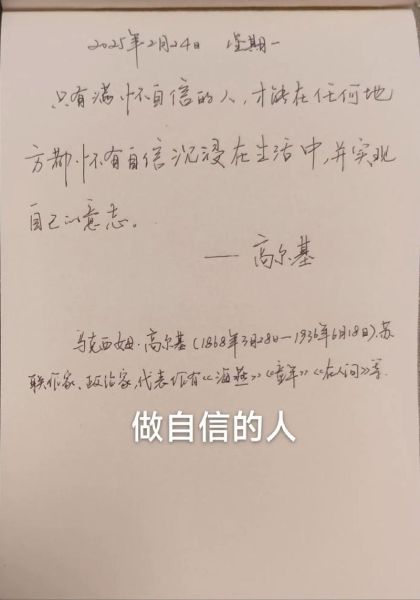 2025年2月24日 星期一
只有满怀自信的人,才能在任何地
方都怀有自信沉浸在生活中,并实现
自己的意志。
——高尔基
马克西姆·高尔基(1868年3月28日—1936年6月18日).苏
联作家、政治家,代表作有《海燕》《童年》《在人间》等.
做自信的人